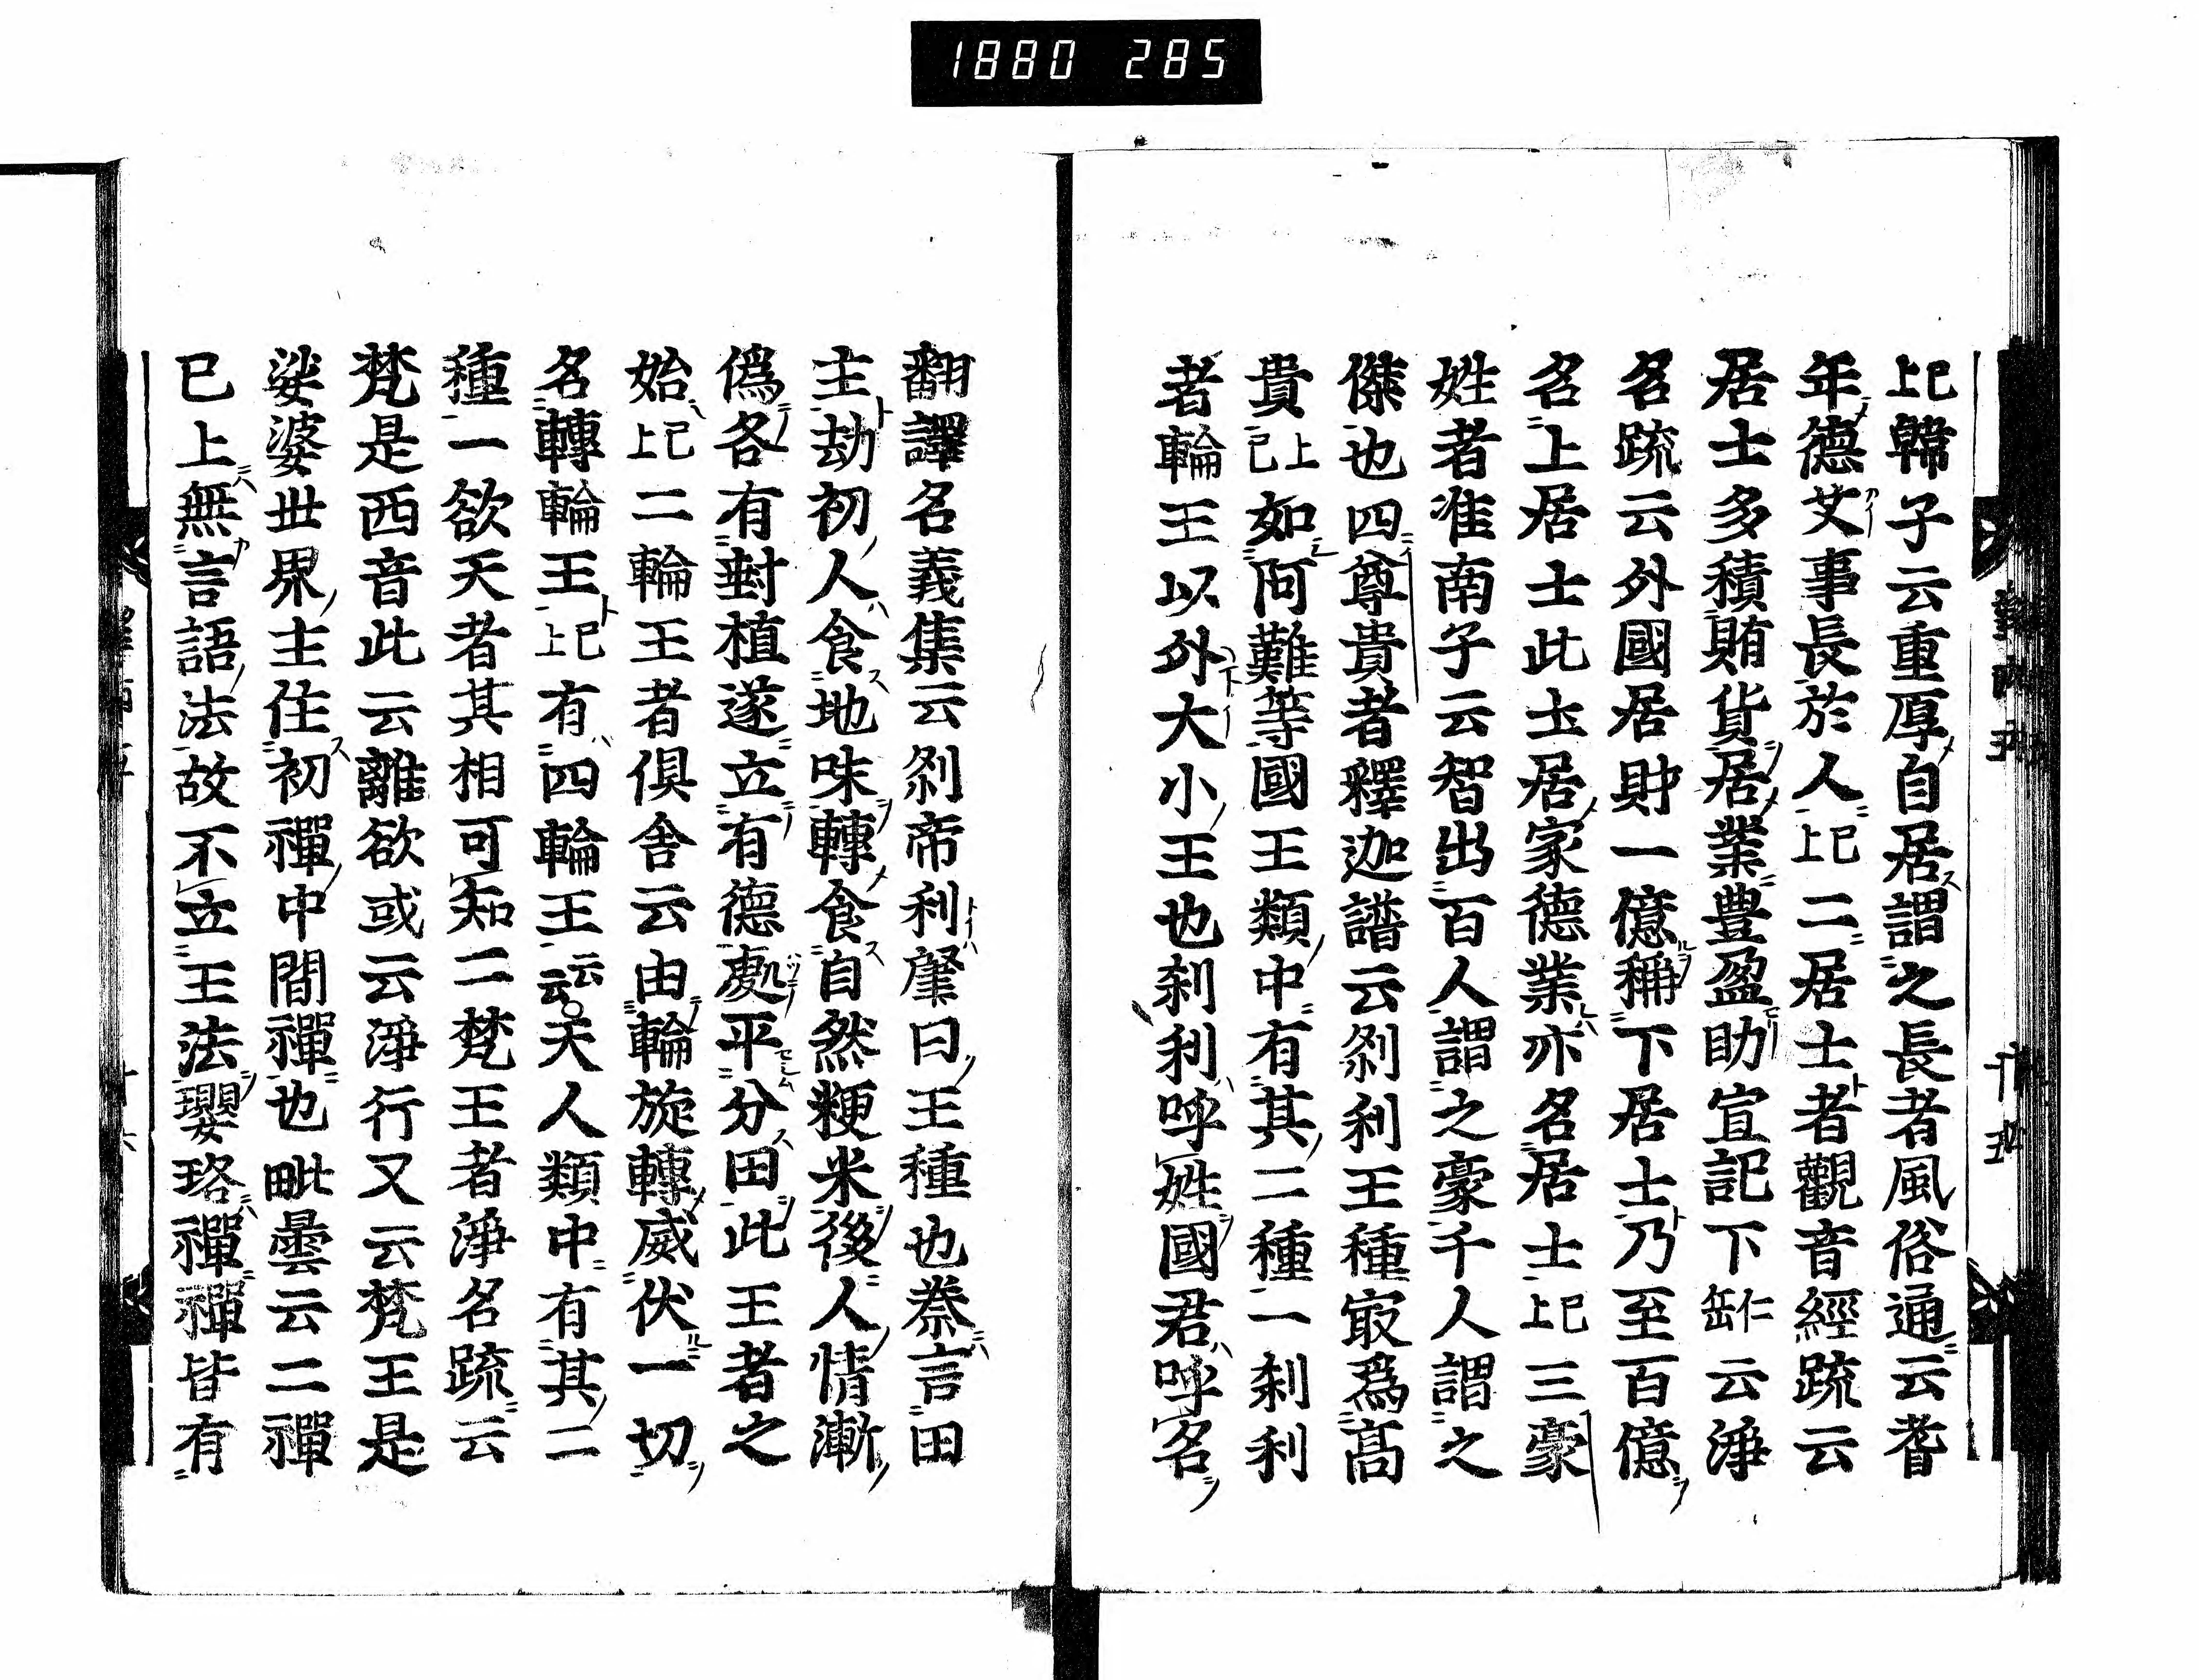 1880 285
已上韓子云重厚自居謂之長者風俗通云耆
年德艾事長於人已上二居士者觀音經疏云
居士多積賄貨居業豊盈助宣記下缶仁云淨
名疏云外國居財一億稱下居士乃至百億
名上居士此土居家德業亦名居士已上三豪
姓者准南子云智出百人謂之豪千人謂之
傑也四尊貴者釋迦譜云刹利王種㝡爲髙
貴已上如阿難等國王類中有其二種一刹利
者輪王以外大小王也刹利呼姓國君呼名
翻譯名義集云刹帝利肇曰王種也桊言田
主劫初人食地味轉食自然粳米後人情漸
僞各有封植遂立有德處平分田此王者之
始已上二輪王者俱舍云由輪旋轉威伏一切
名轉輪王已上有四輪王云云○天人類中有其二
種一欲天者其相可知二梵王者淨名疏云
梵是西音此云離欲或云淨行又云梵王是
娑婆世界主住初禪中間禪也毗曇云二禪
已上無言語法故不立王法瓔珞禪禪皆有